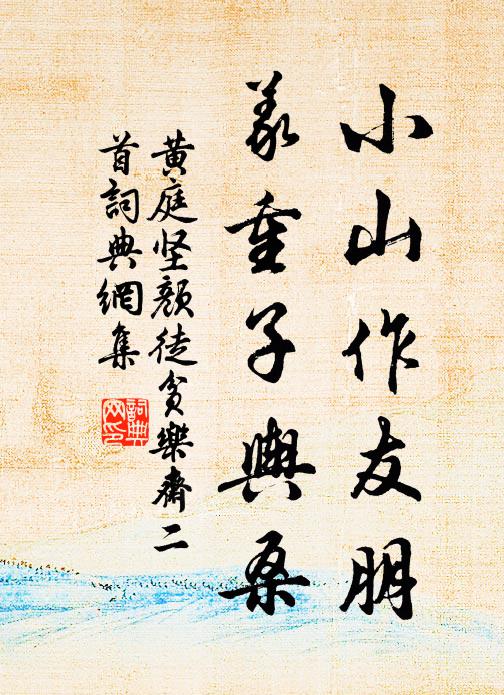 小山作友朋
義重子輿桑
黄庭坚颜徒贫樂齋二
首詞典網集
詞典
网印